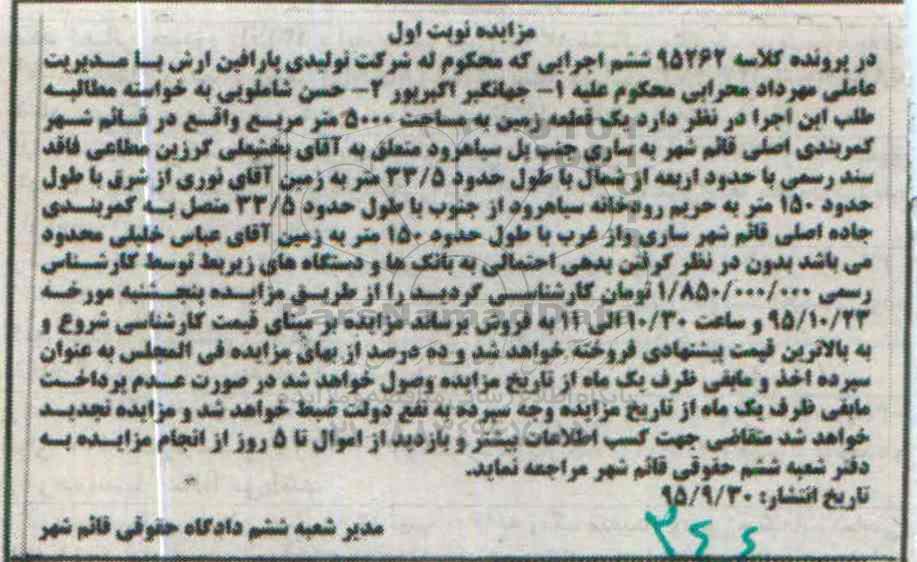 مزایده نوبت اول
در پرونده کلاسه ۹۵۲۶۲ ششم اجرایی که محکوم له شرکت تولیدی پارافین ارش با مدیریت
عاملی مهرداد محرابی محکوم علیه ۱- جهانگیر اکبرپور ۲- حسن شاملویی به خواسته مطالبه
طلب این اجرا در نظر دارد یک قطعه زمین به مساحت ۵۰۰۰ متر مربع واقع در قائم شهر
کمربندی اصلی قائم شهر به ساری جنب پل سیاهرود متعلق به آقای بخشعلی گرزین مطاعی فاقد
سند رسمی با حدود اربعه از شمال با طول حدود ۳۳/۵ متر به زمین آقای نوری از شرق با طول
حدود ۱۵۰ متر به حریم رودخانه سیاهرود از جنوب با طول حدود ۳۳/۵ متصل به کمربندی
جاده اصلی قائم شهر ساری واز غرب با طول حدود ۱۵۰ متر به زمین آقای عباس خلیلی محدود
می باشد بدون در نظر گرفتن بدهی احتمالی به بانک ها و دستگاه های زیربط توسط کارشناس
رسمی ۱/۸۵۰/۰۰۰/۰۰۰ تومان کارشناسی گردید را از طریق مزایده پنجشنبه مورخه
۹۵/۱۰/۲۳ و ساعت ۱۰/۳۰ الی ۱۱ به فروش برساند مزایده بر مبنای قیمت کارشناسی شروع و
به بالاترین قیمت پیشنهادی فروخته خواهد شد و ده درصد از بهای مزایده فی المجلس به عنوان
سپرده اخذ و مابقی ظرف یک ماه از تاریخ مزایده وصول خواهد شد در صورت عدم پرداخت
مابقی ظرف یک ماه از تاریخ مزایده وجه سپرده به نفع دولت ضبط خواهد شد و مزایده تجدید
خواهد شد متقاضی جهت کسب اطلاعات بیشتر و بازدید از اموال تا ۵ روز از انجام مزایده به
دفتر شعبه ششم حقوقی قائم شهر مراجعه نماید.
تاریخ انتشار: ۹۵/۹/۳۰
مدیر شعبه ششم دادگاه حقوقی قائم شهر
ParsNamadData